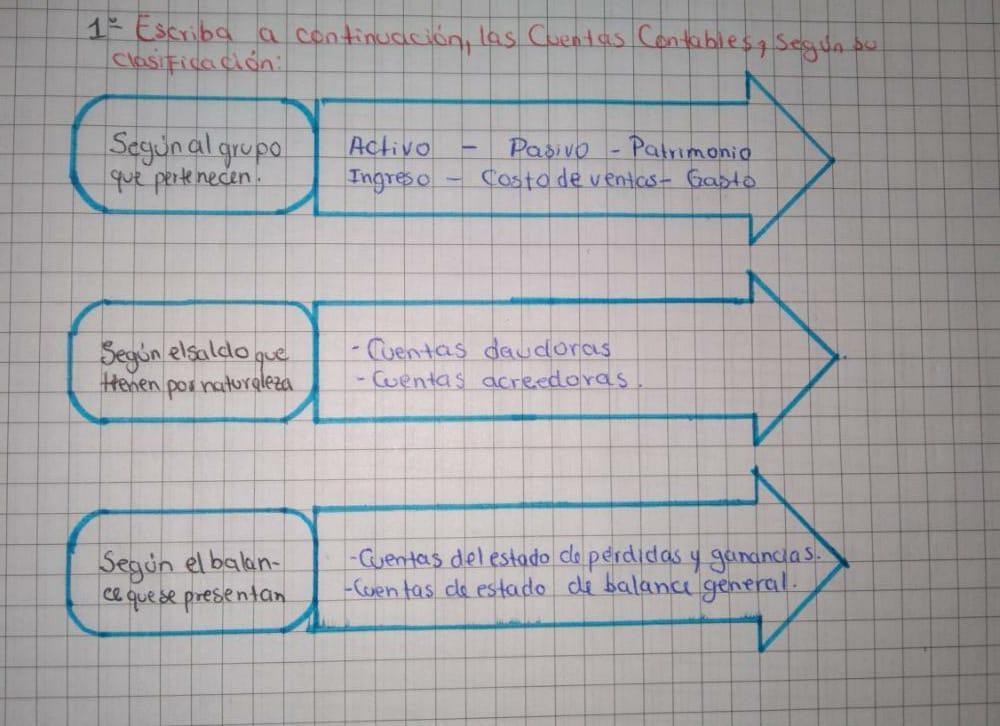 1º Escriba a continuación, las Cuentas Contables, según su
clasificación:
Según al grupo
que pertenecen.
Activo - Pasivo - Patrimonio
Ingreso - Costo de ventas - Gasto
Según el saldo que
tienen por naturaleza
- Cuentas daudoras
- Cuentas acreedoras.
Según el balan-
ce que se presentan
- Cuentas del estado de pérdidas y ganancias.
- Cuentas de estado de balance general.